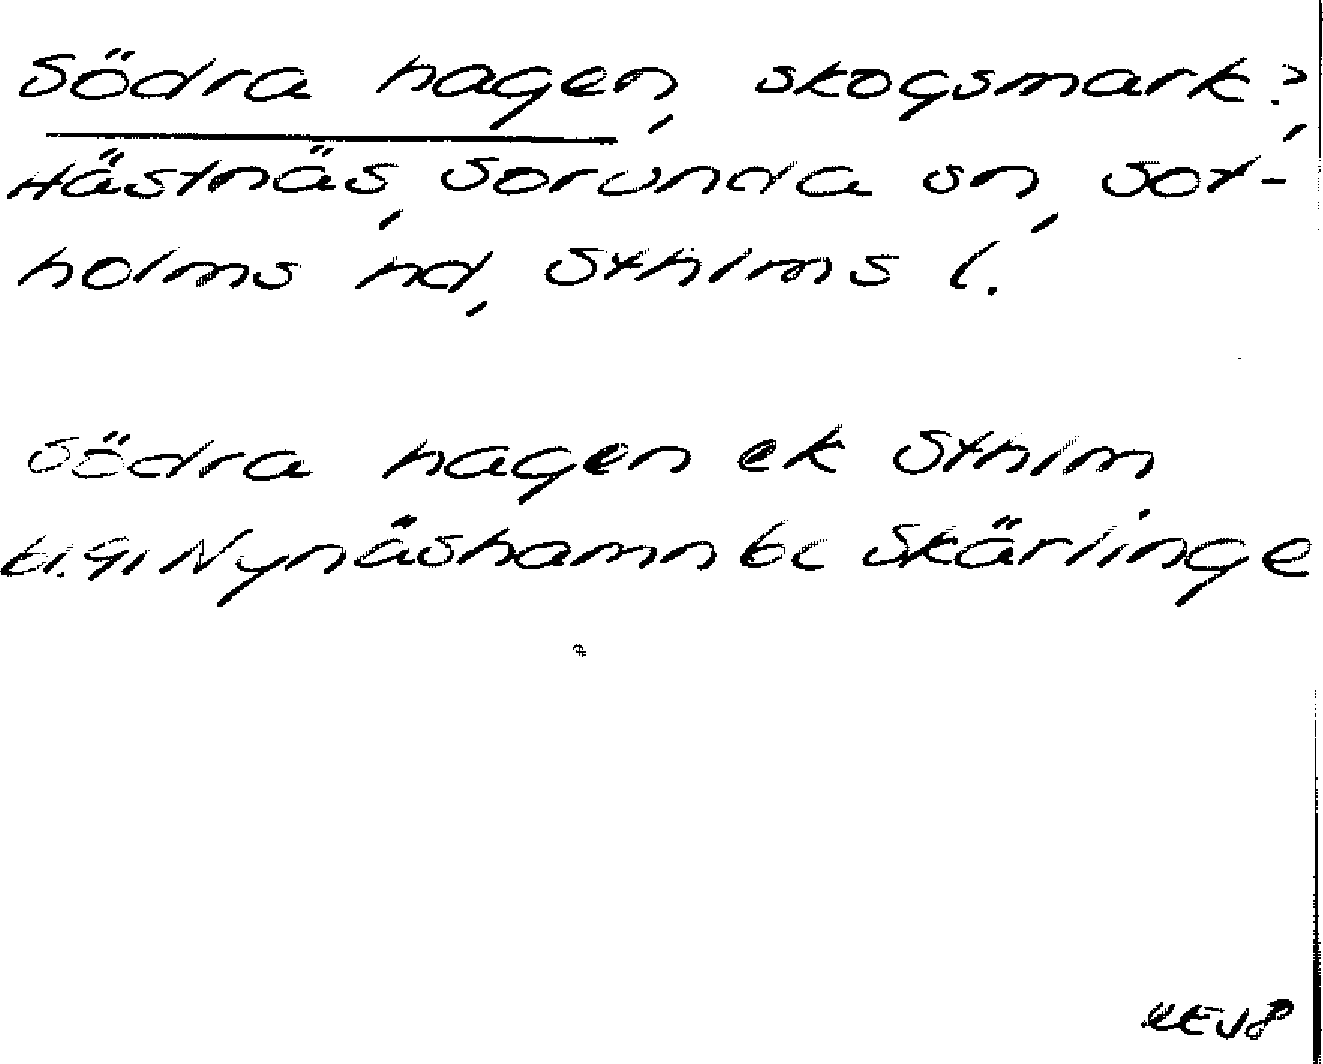 Södra hagen, skogsmark?,
Hästnäs, Sorunda sn, Sot-
holms hd, Sthlms l.
Södra hagen ek Sthlm
bl. 9I Nynäshamn 6c Skärlinge